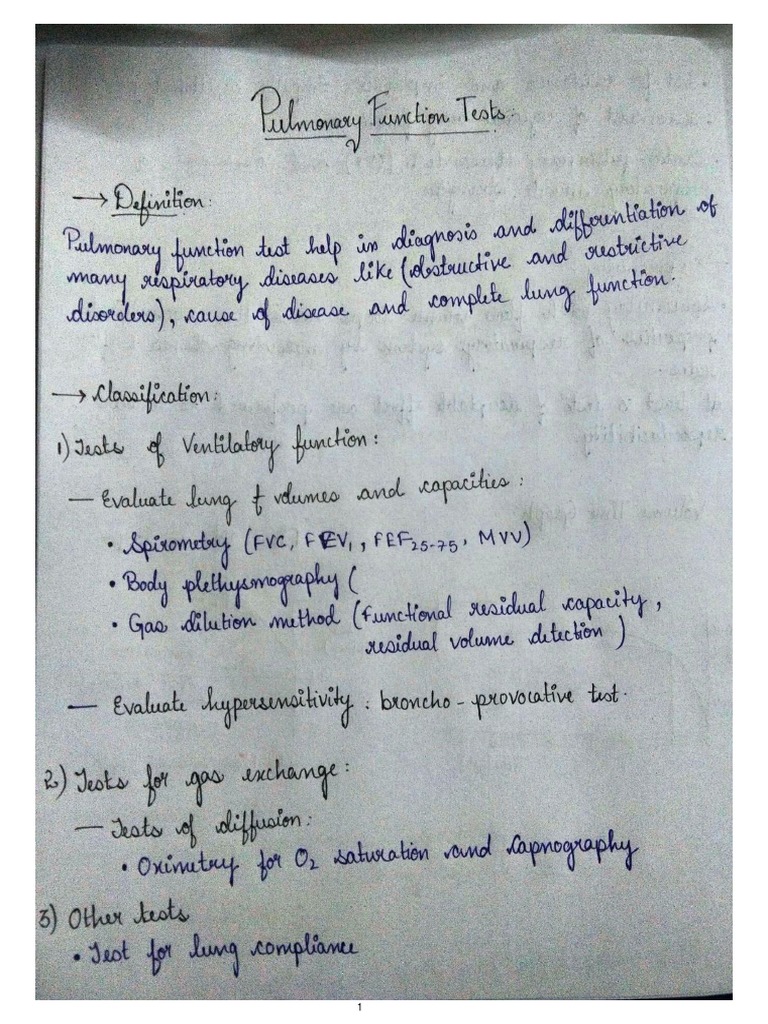 Pulmonary Function Tests
→ Definition:
Pulmonary function test help in diagnosis and differentiation of
many respiratory diseases like (obstructive and restrictive
disorders), cause of disease and complete lung function.
→ Classification:
1) Tests of Ventilatory function:
— Evaluate lung volumes and capacities:
• Spirometry (FVC, FEV₁, FEF₂₅₋₇₅, MVV)
• Body plethysmography (
• Gas dilution method (functional residual capacity,
residual volume detection)
— Evaluate hypersensitivity: broncho-provocative test.
2) Tests for gas exchange:
— Tests of diffusion:
• Oximetry for O₂ saturation and Capnography
3) Other tests
• Test for lung compliance
1